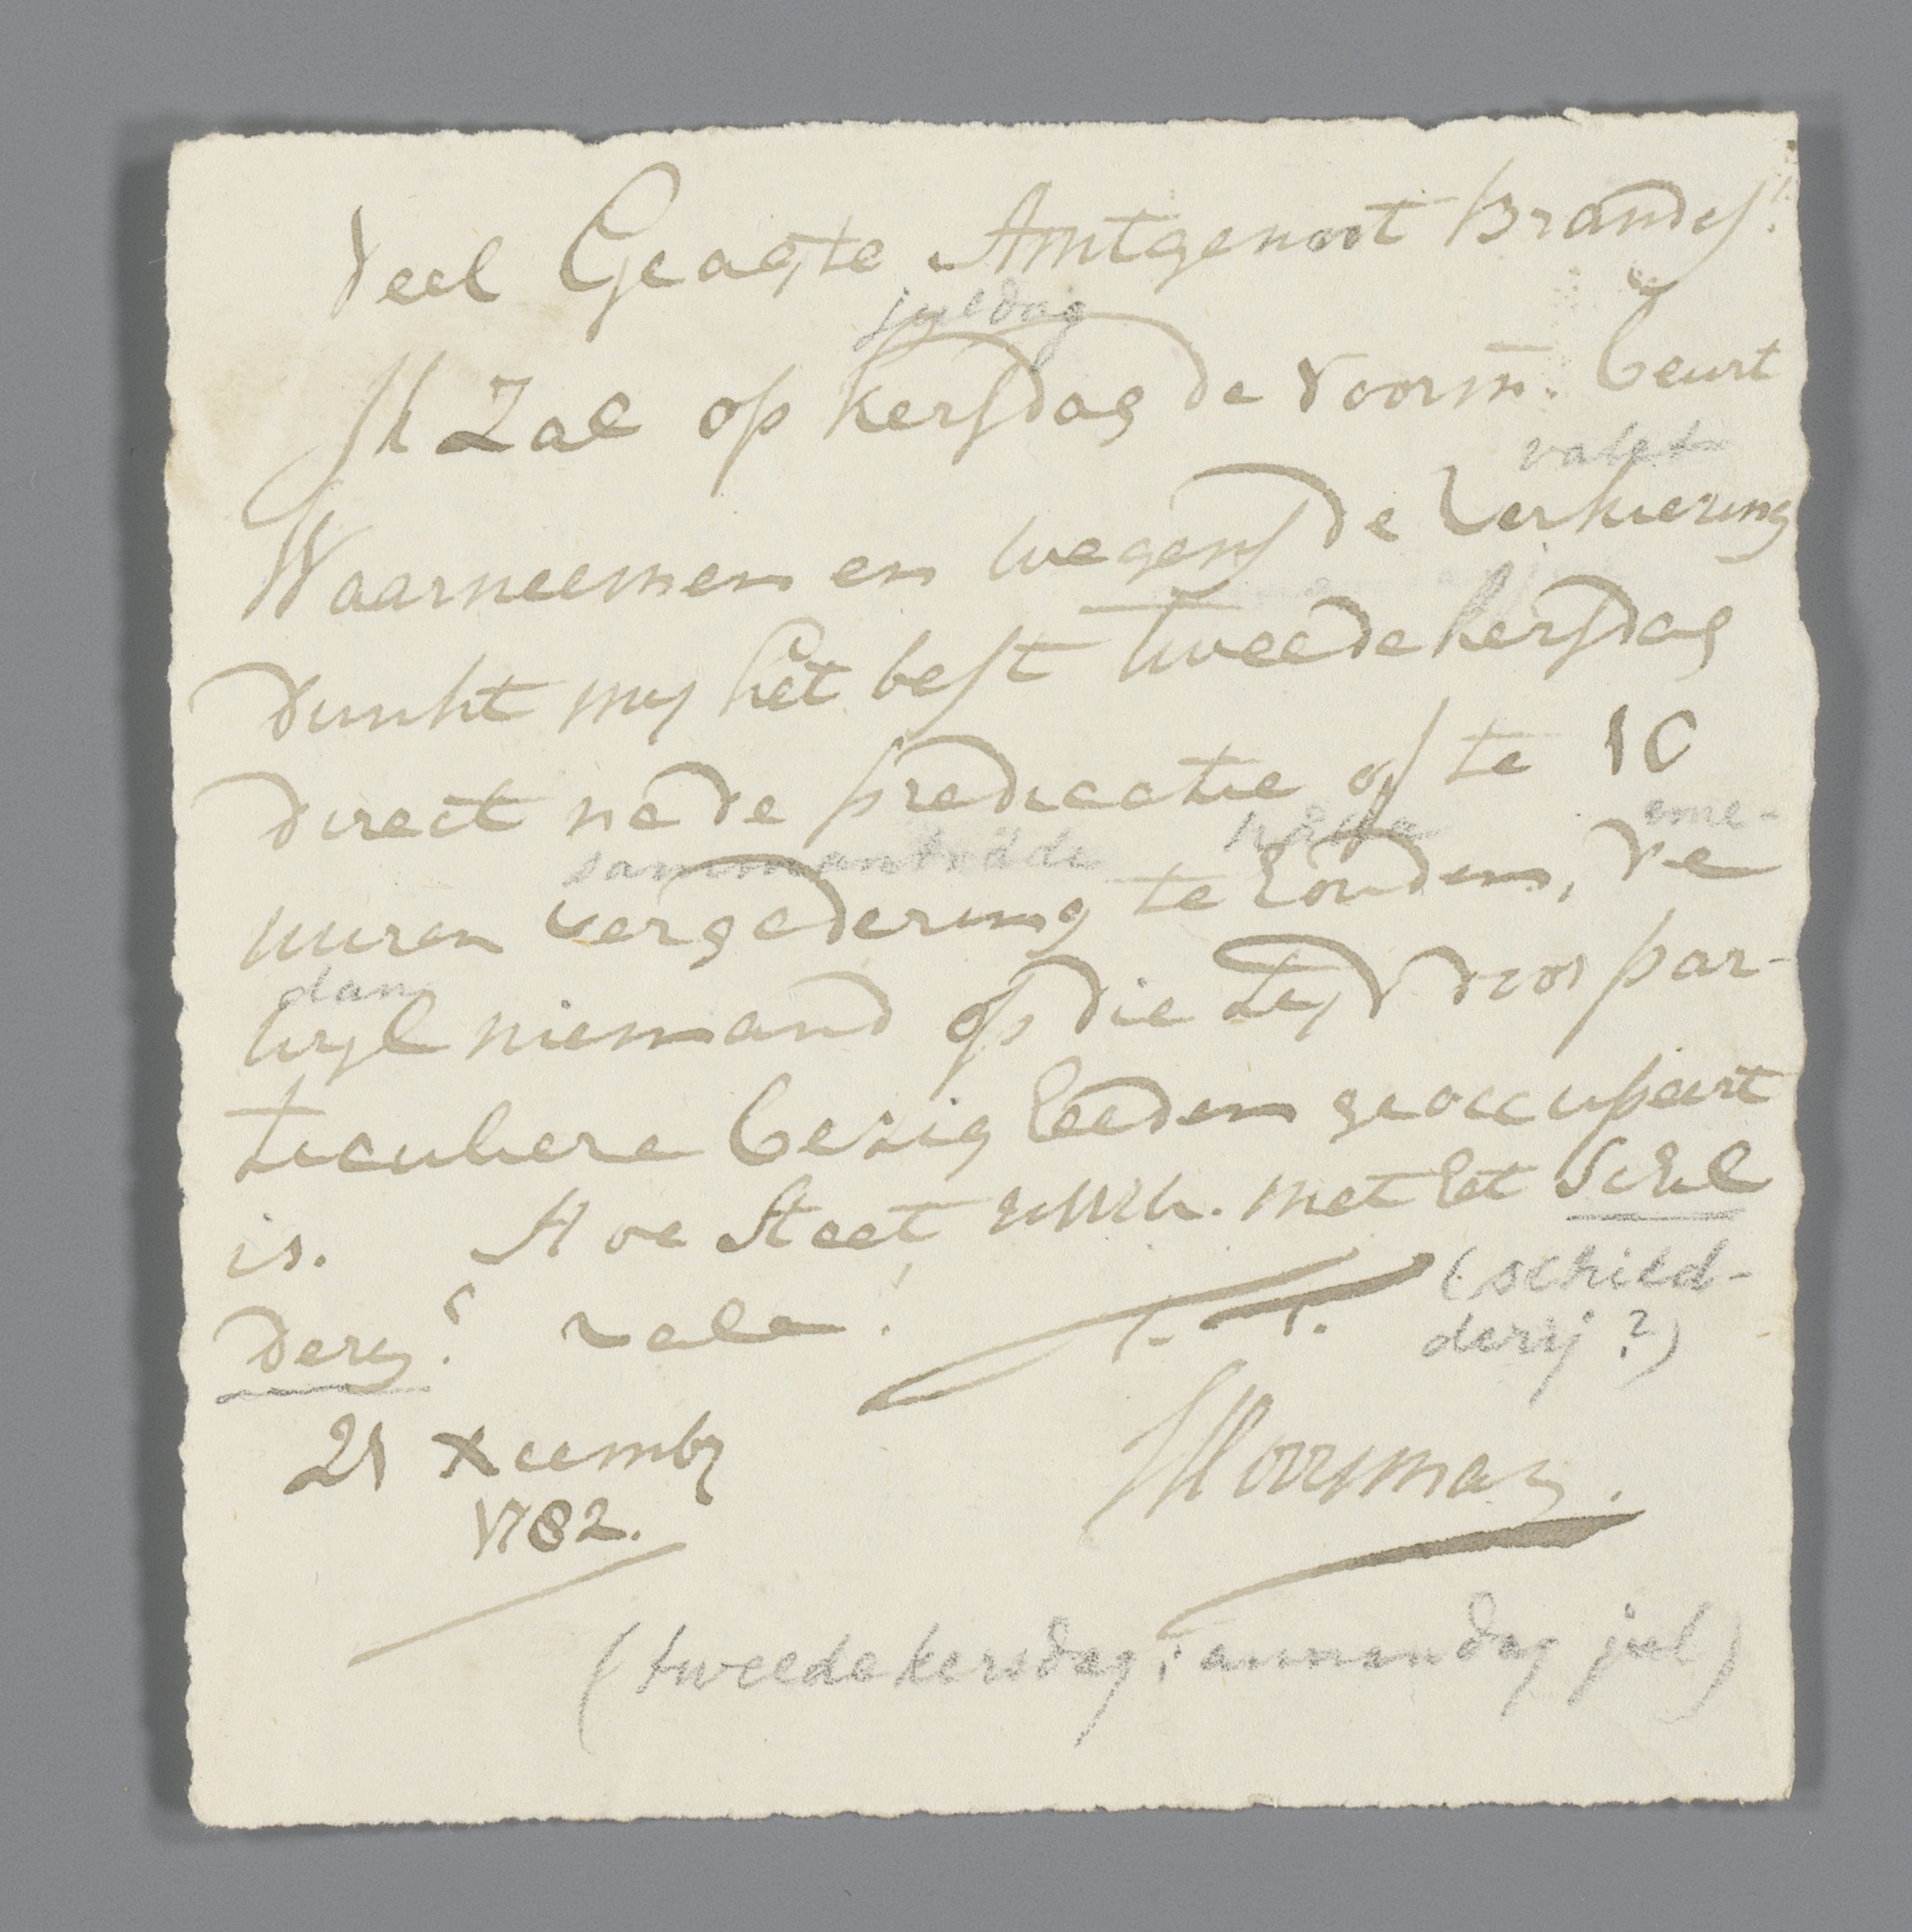 Veel Geagte Amtgenoot Brandes!
juldag
Ik Zal op kersdag de voorm. beurt
valet
Waarneemen en wegens de verkiezing
Dunkt my het best tweede kersdag
Direct na de predicatie of te 10
sammanträde hålla eme-
uuren vergadering te houden, de
dan
wyl niemand op die tyd door par-
ticuliere bezig heeden geoccupeert
is. Hoe staet met het Schil
(schild-
Dery? vale! T. T.
derij?)
21 Xcembr
1782.
(tweede kersdag: annandag jul)